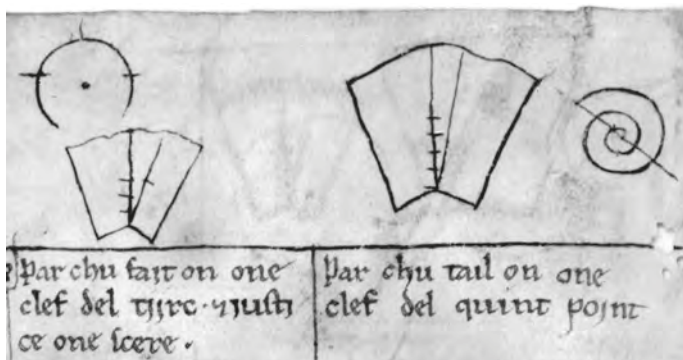 Par chu fait on one
clef del tiirc ⁊ iusti
ce one scere.
Par chu tail on one
clef del quint point